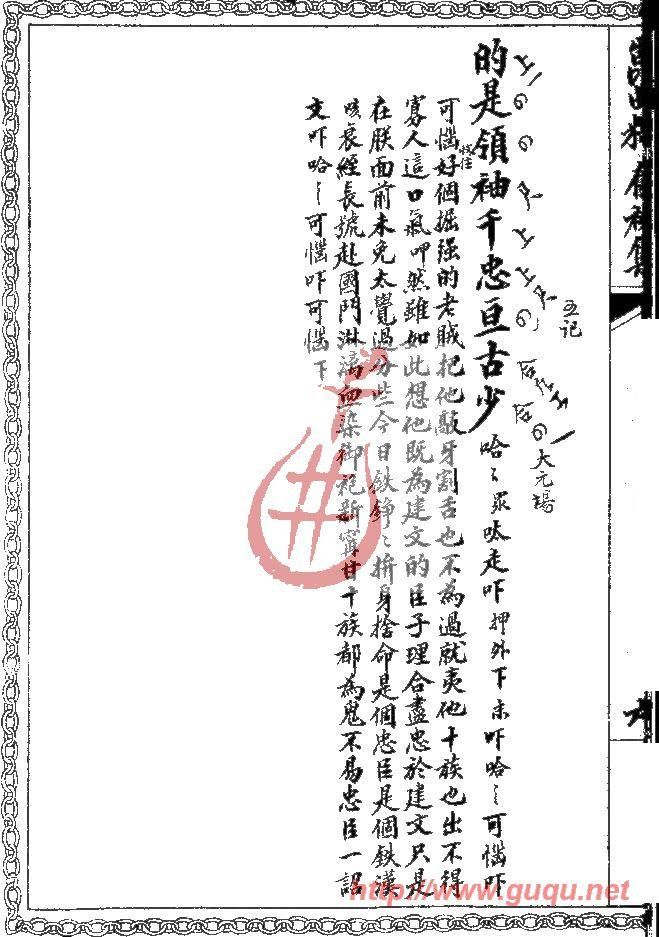 的是領袖千忠亘古少 哈〻眾呔走吓押外下末吓哈〻可惱吓
上一の の 尺上上尺の 合 工 合の
五记
大元場
可惱好個掘强的老賊把他敲牙割舌也不為過就夷他十族也出不得
寡人這口氣呷然雖如此想他既為建文的臣子理合盡忠於建文只是
在朕面前未免太覺過分些今日鉄錚〻拚身捨命是個忠臣是個鉄漢
衰絰長號赴國門淋漓血染御袍新寗甘十族都為鬼不易忠臣一詔
文吓哈〻可惱吓可惱下
http://www.guqu.net